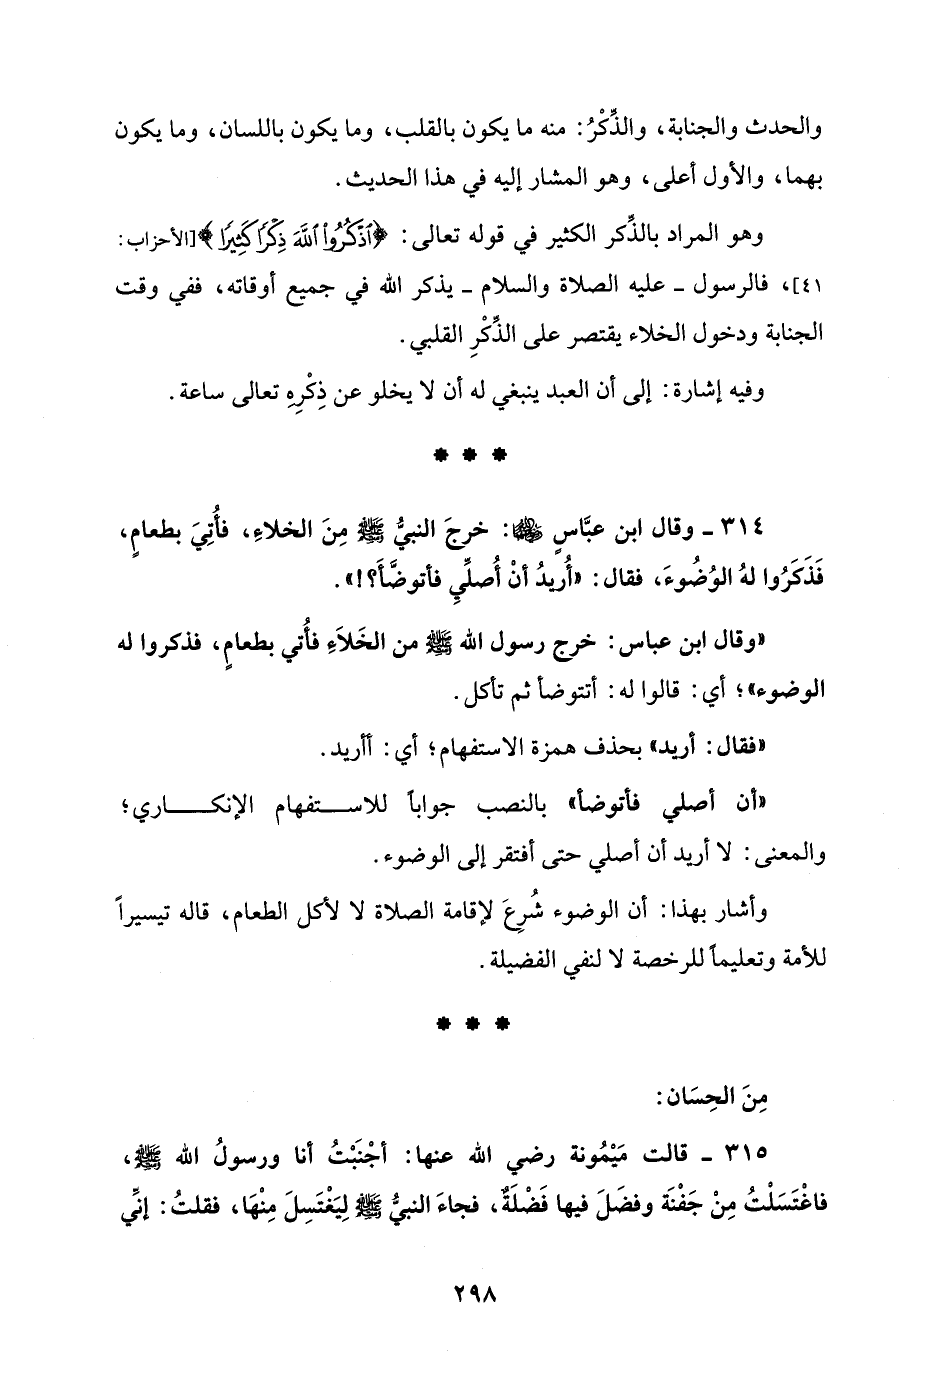 والحدث والجنابة، والذِّكْرُ: منه ما يكون بالقلب، وما يكون باللسان، وما يكون
بهما، والأول أعلى، وهو المشار إليه في هذا الحديث.
وهو المراد بالذِّكر الكثير في قوله تعالى: ﴿ٱذْكُرُواْ ٱللَّهَ ذِكْرًا كَثِيرًا﴾[الأحزاب:
٤١]، فالرسول ـ عليه الصلاة والسلام ـ يذكر الله في جميع أوقاته، ففي وقت
الجنابة ودخول الخلاء يقتصر على الذِّكْرِ القلبي.
وفيه إشارة: إلى أن العبد ينبغي له أن لا يخلو عن ذِكْرِهِ تعالى ساعة.
* * *
٣١٤ ـ وقال ابن عبَّاسٍ ﵁: خرجَ النبيُّ ﷺ مِنَ الخلاءِ، فأُتِيَ بطعامٍ،
فَذَكَرُوا لهُ الوُضُوءَ، فقال: «أُريدُ أنْ أُصلِّيِ فأتوضَّأَ؟!».
«وقال ابن عباس: خرج رسول الله ﷺ من الخَلاَءِ فأُتي بطعامٍ، فذكروا له
الوضوء»؛ أي: قالوا له: أتتوضأ ثم تأكل.
«فقال: أريد» بحذف همزة الاستفهام؛ أي: أأريد.
«أن أصلي فأتوضأ» بالنصب جواباً للاستفهام الإنكاري؛
والمعنى: لا أريد أن أصلي حتى أفتقر إلى الوضوء.
وأشار بهذا: أن الوضوء شُرِعَ لإقامة الصلاة لا لأكل الطعام، قاله تيسيراً
للأمة وتعليماً للرخصة لا لنفي الفضيلة.
* * *
مِنَ الحِسَان:
٣١٥ ـ قالت مَيْمُونة رضي الله عنها: أجْنَبْتُ أنا ورسولُ الله ﷺ،
فاغْتَسَلْتُ مِنْ جَفْنَة وفضَلَ فيها فَضْلَةٌ، فجاءَ النبيُّ ﷺ لِيَغْتَسِلَ مِنْهَا، فقلتُ: إنِّي
٢٩٨